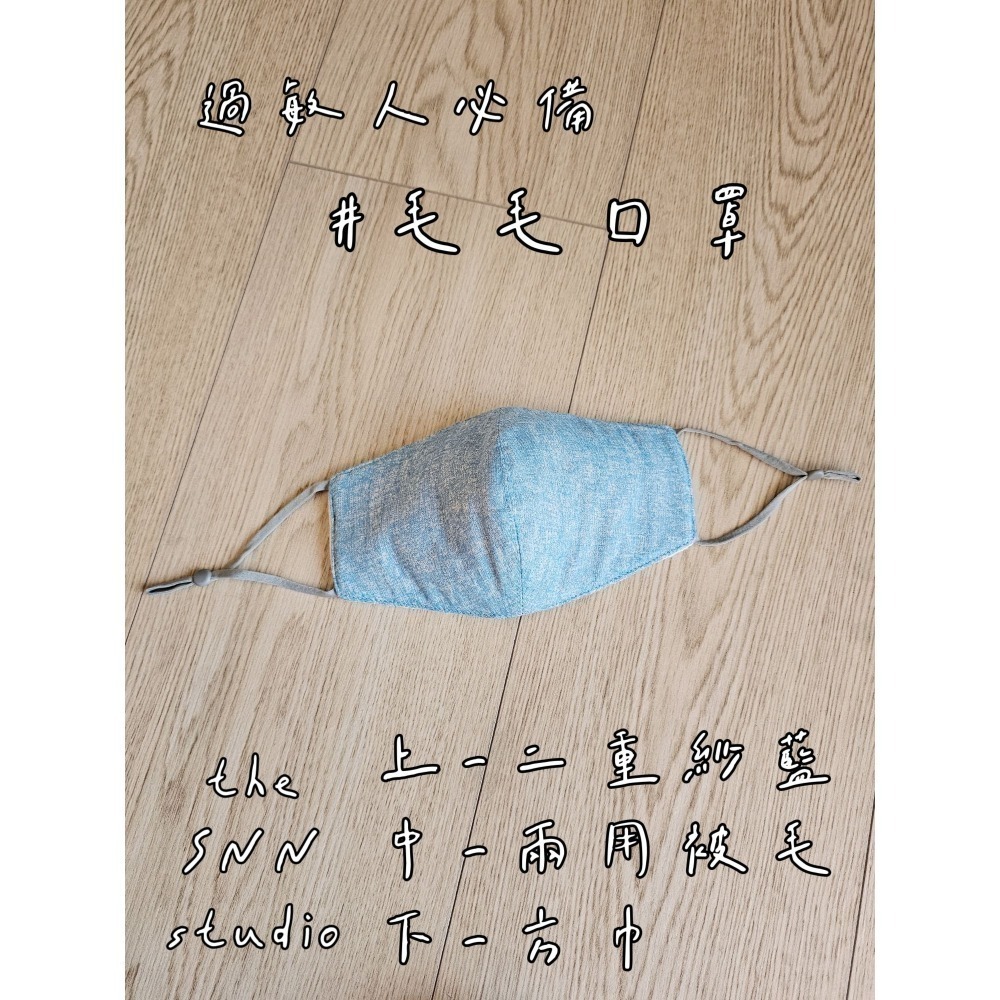 過敏人必備
#毛毛口罩
the
SNN
studio
上-二重紗藍
中-兩用被毛
下-方巾